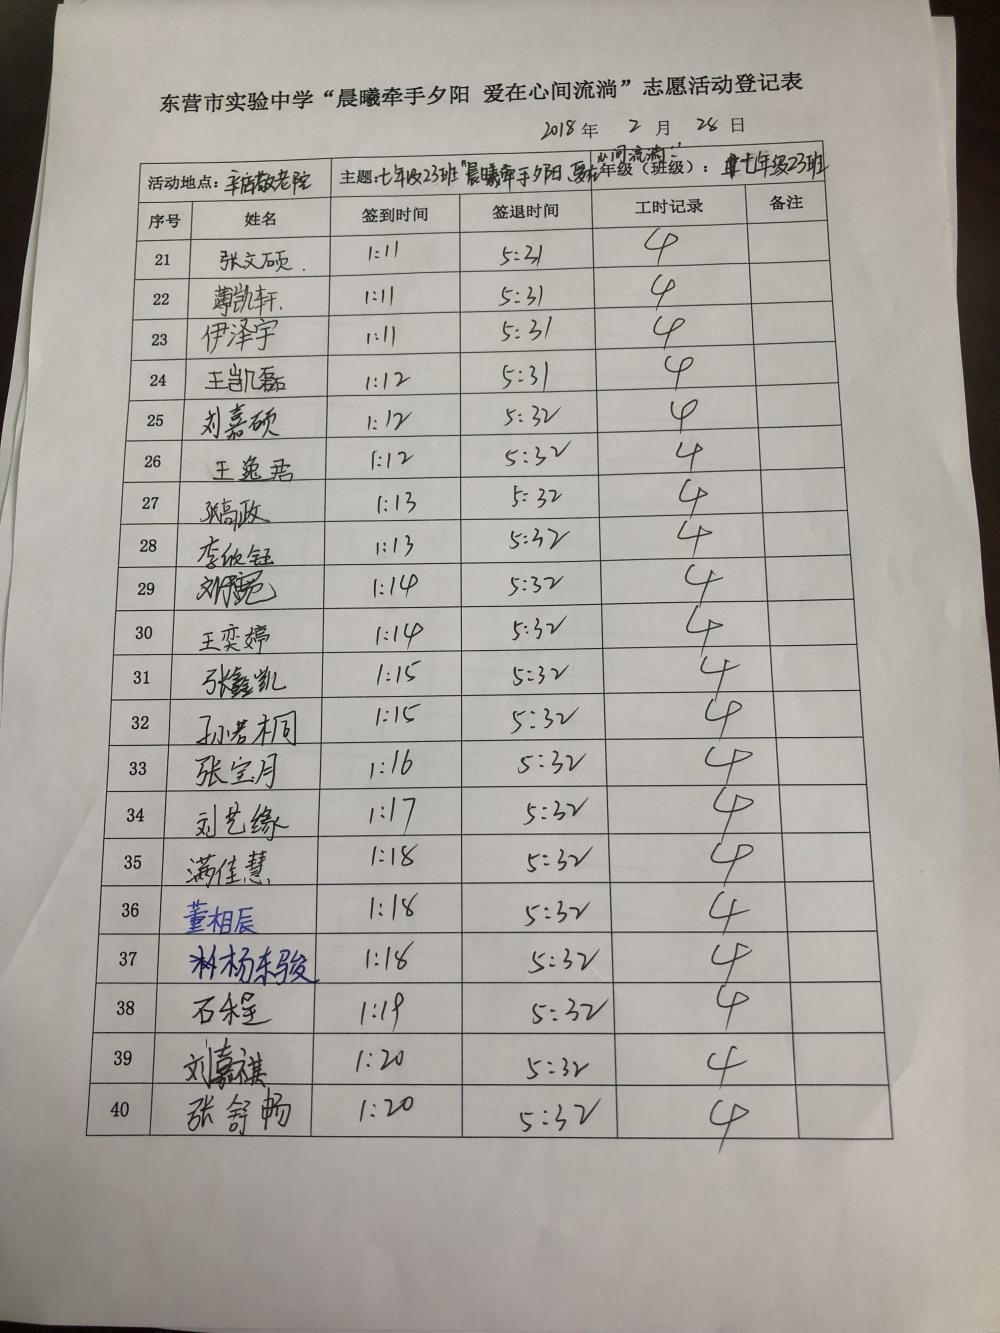 东营市实验中学“晨曦牵手夕阳 爱在心间流淌”志愿活动登记表
2018年 2 月 28 日
活动地点：辛店敬老院 主题：七年级23班“晨曦牵手夕阳，爱在心间流淌” 年级（班级）：七年级23班
序号 姓名 签到时间 签退时间 工时记录 备注
21 张文硕 1:11 5:31 4
22 薄凯轩 1:11 5:31 4
23 伊泽宇 1:11 5:31 4
24 王凯磊 1:12 5:31 4
25 刘嘉硕 1:12 5:32 4
26 王逸君 1:12 5:32 4
27 张高政 1:13 5:32 4
28 李欣钰 1:13 5:32 4
29 1:14 5:32 4
30 王奕婷 1:14 5:32 4
31 张鑫凯 1:15 5:32 4
32 孙若桐 1:15 5:32 4
33 张宝月 1:16 5:32 4
34 刘艺缘 1:17 5:32 4
35 满佳慧 1:18 5:32 4
36 董相辰 1:18 5:32 4
37 杨东骏 1:18 5:32 4
38 石程 1:19 5:32 4
39 刘嘉祺 1:20 5:32 4
40 张舒畅 1:20 5:32 4